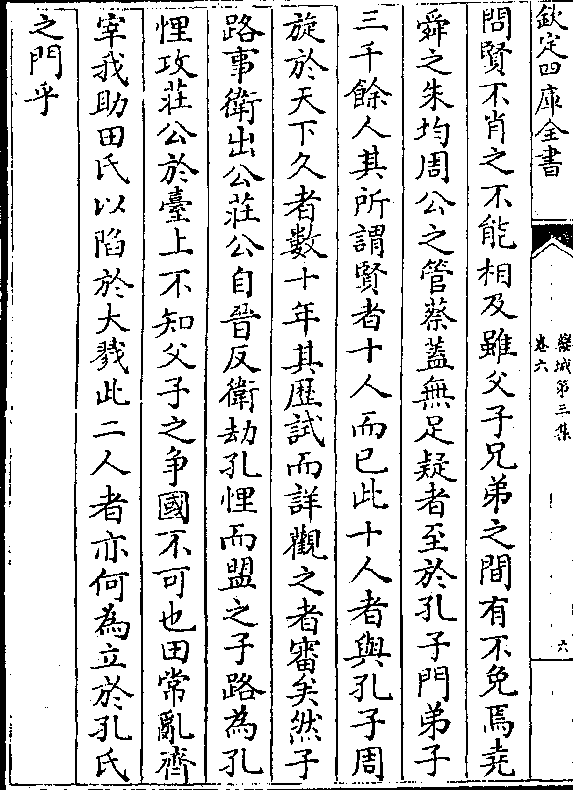 欽定四庫全書
欒城第三集
卷六
六
問賢不肖之不能相及雖父子兄弟之間有不免焉堯
舜之朱均周公之管蔡蓋無足疑者至於孔子門弟子
三千餘人其所謂賢者十人而已此十人者與孔子周
旋於天下久者數十年其歴試而詳觀之者審矣然子
路事衛出公莊公自晉反衛劫孔悝而盟之子路為孔
悝攻莊公於臺上不知父子之争國不可也田常亂齊
宰我助田氏以陷於大戮此二人者亦何為立於孔氏
之門乎